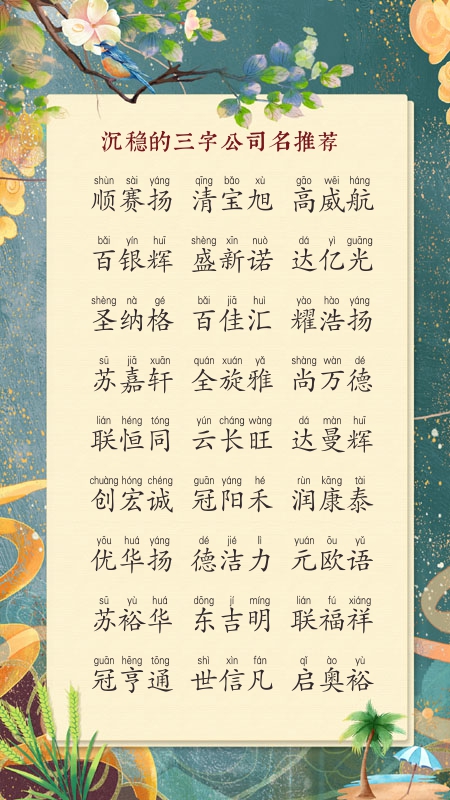 沉稳的三字公司名推荐
shùn sài yáng qīng bǎo xù gāo wēi háng
顺赛扬 清宝旭 高威航
bǎi yín huī shèng xīn nuò dá yì guāng
百银辉 盛新诺 达亿光
shèng nà gé bǎi jiā huì yào hào yáng
圣纳格 百佳汇 耀浩扬
sū jiā xuān quán xuán yǎ shàng wàn dé
苏嘉轩 全旋雅 尚万德
lián héng tóng yún cháng wàng dá màn huī
联恒同 云长旺 达曼辉
chuàng hóng chéng guān yáng hé rùn kāng tài
创宏诚 冠阳禾 润康泰
yōu huá yáng dé jié lì yuán ōu yǔ
优华扬 德洁力 元欧语
sū yù huá dōng jí míng lián fú xiáng
苏裕华 东吉明 联福祥
guān hēng tōng shì xìn fán qǐ ào yù
冠亨通 世信凡 启奥裕